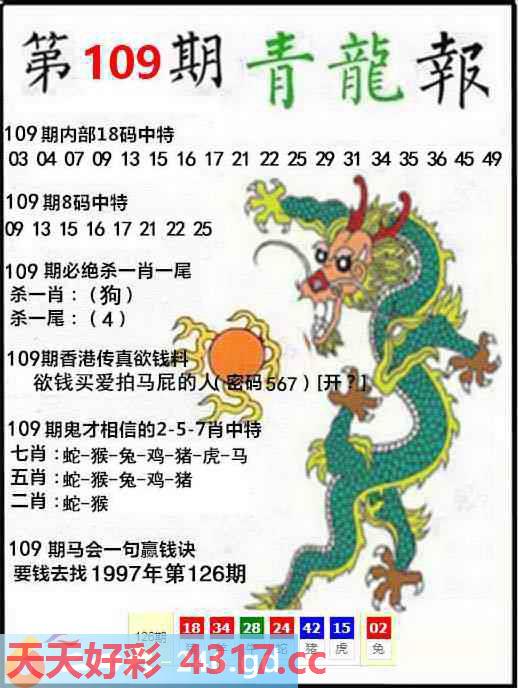 第109期 青龍報
109期内部18码中特
03 04 07 09 13 15 16 17 21 22 25 29 31 34 35 36 45 49
109期8码中特
09 13 15 16 17 21 22 25
109 期必绝杀一肖一尾
杀一肖：（狗）
杀一尾：（4）
109期香港传真欲钱料
欲钱买爱拍马屁的人(密码567）[开？]
109期鬼才相信的2-5-7肖中特
七肖：蛇-猴-兔-鸡-猪-虎-马
五肖：蛇-猴-兔-鸡-猪
二肖：蛇-猴
109 期马会一句赢钱诀
要钱去找1997年第126期
126期 18 34 28 24 42 15 02
蛇 猪 虎 兔
天天好彩 4317.cc